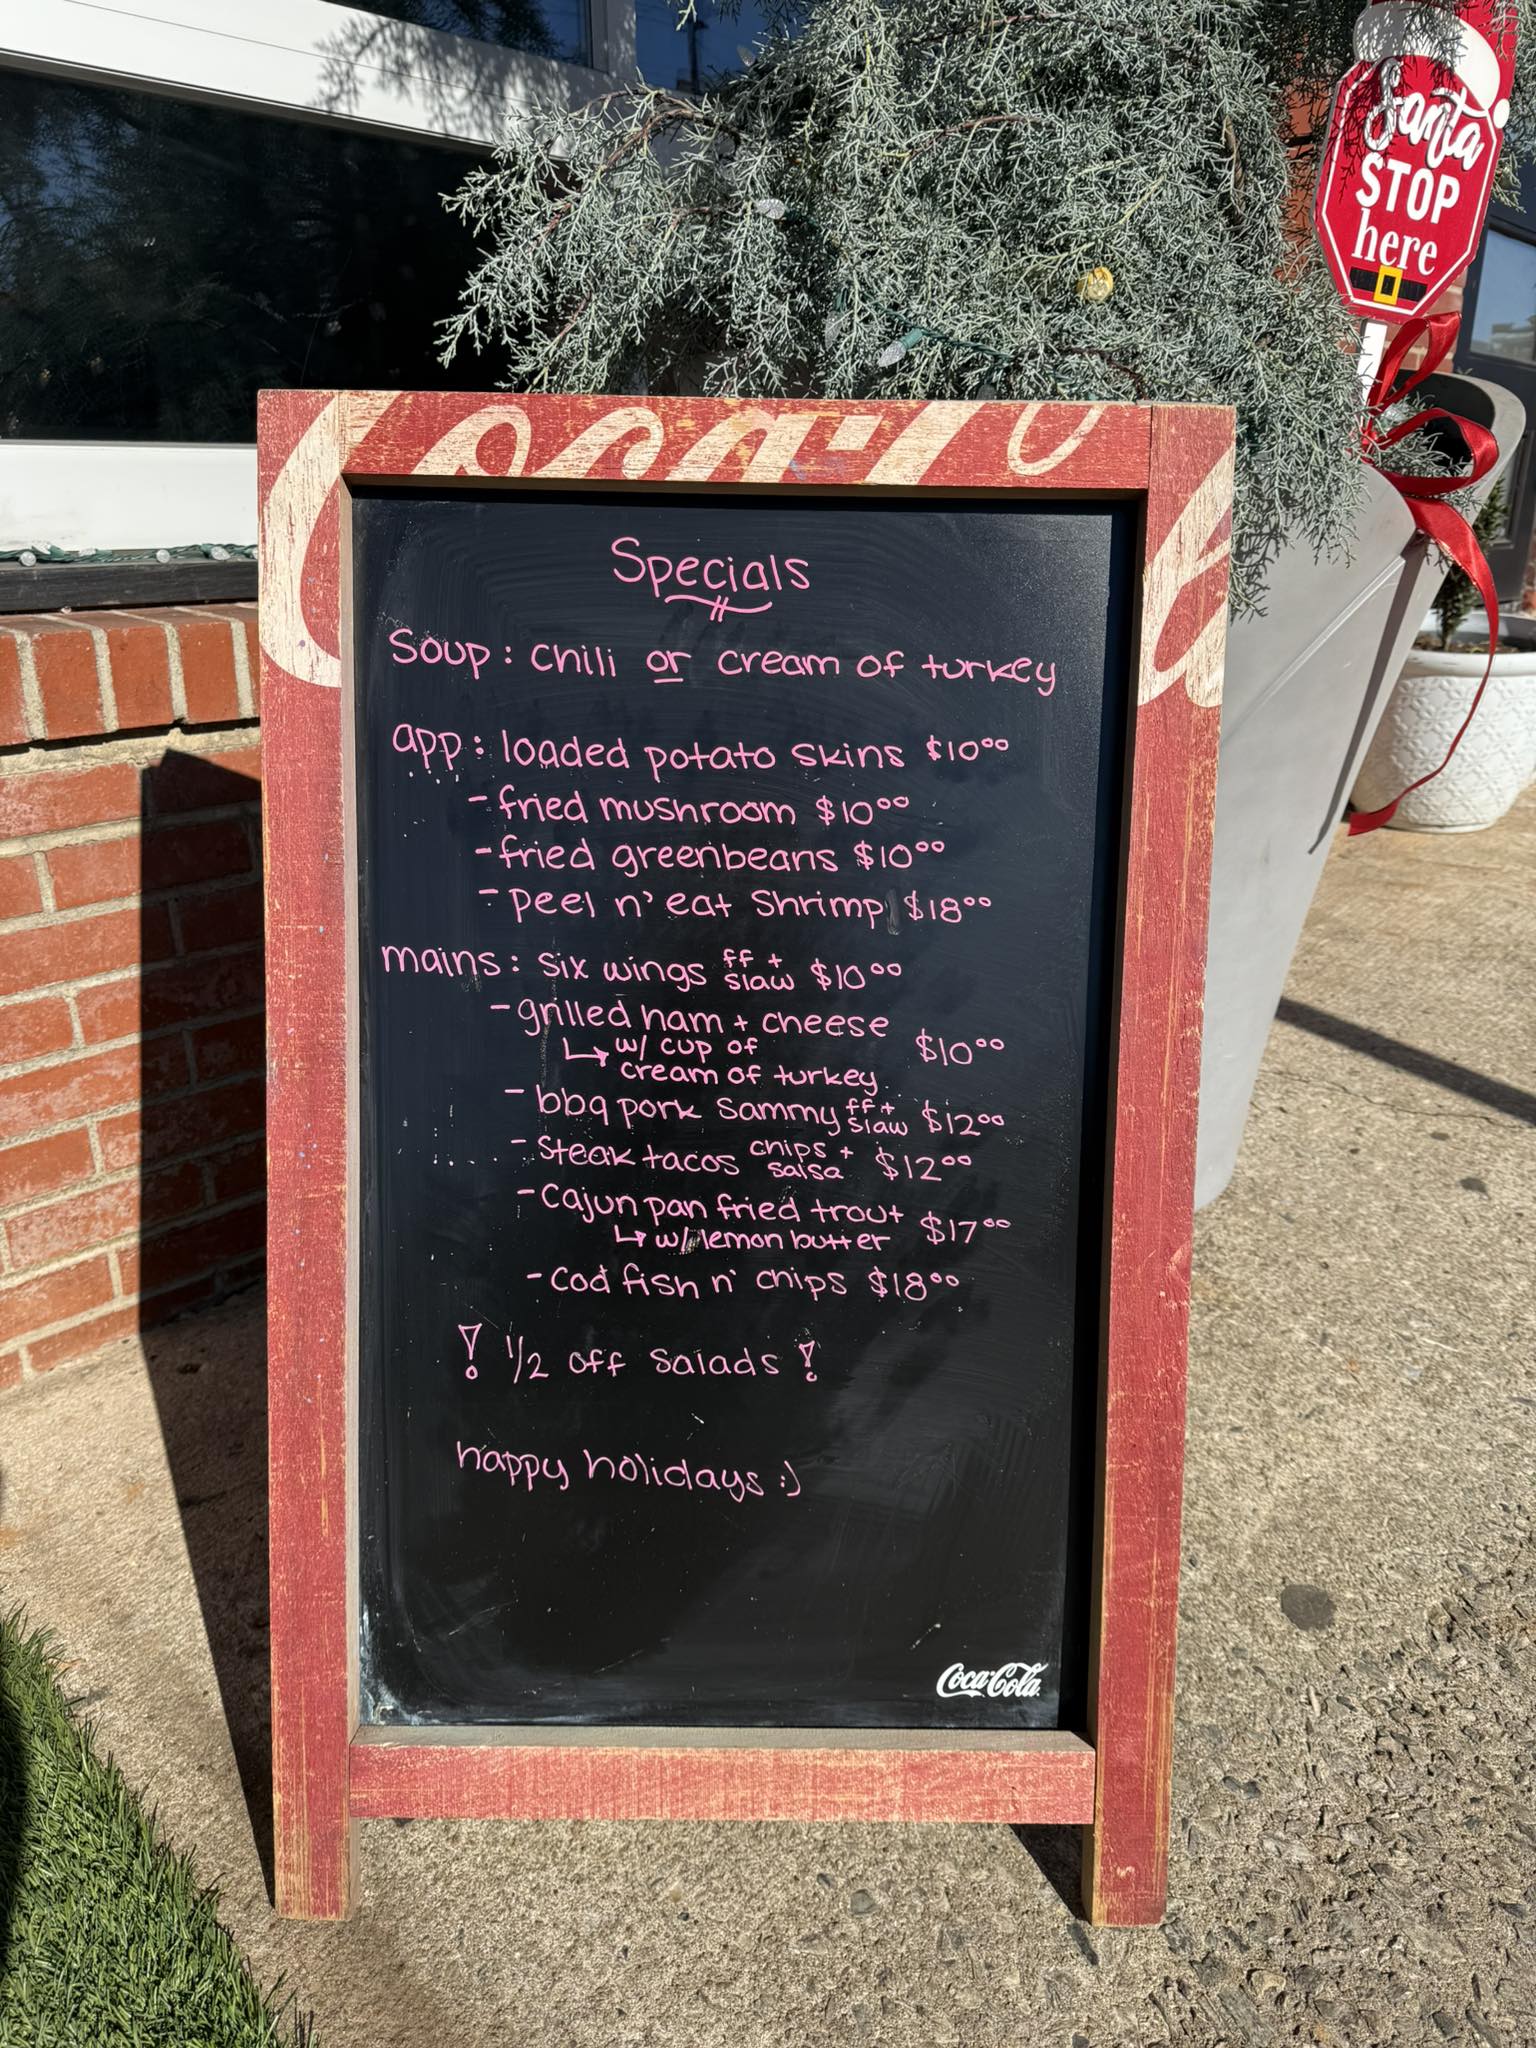 Santa
STOP
here
Coca-Co
Specials
Soup: chili or cream of turkey
app: loaded potato skins $10⁰⁰
- fried mushroom $10⁰⁰
- fried greenbeans $10⁰⁰
- peel n' eat shrimp $18⁰⁰
mains: six wings ff + slaw $10⁰⁰
- grilled ham + cheese $10⁰⁰
↳ w/ cup of
cream of turkey
- bbq pork sammy ff + slaw $12⁰⁰
- steak tacos chips + salsa $12⁰⁰
- cajun pan fried trout $17⁰⁰
↳ w/ lemon butter
- cod fish n' chips $18⁰⁰
! 1/2 off salads !
happy holidays :)
Coca-Cola